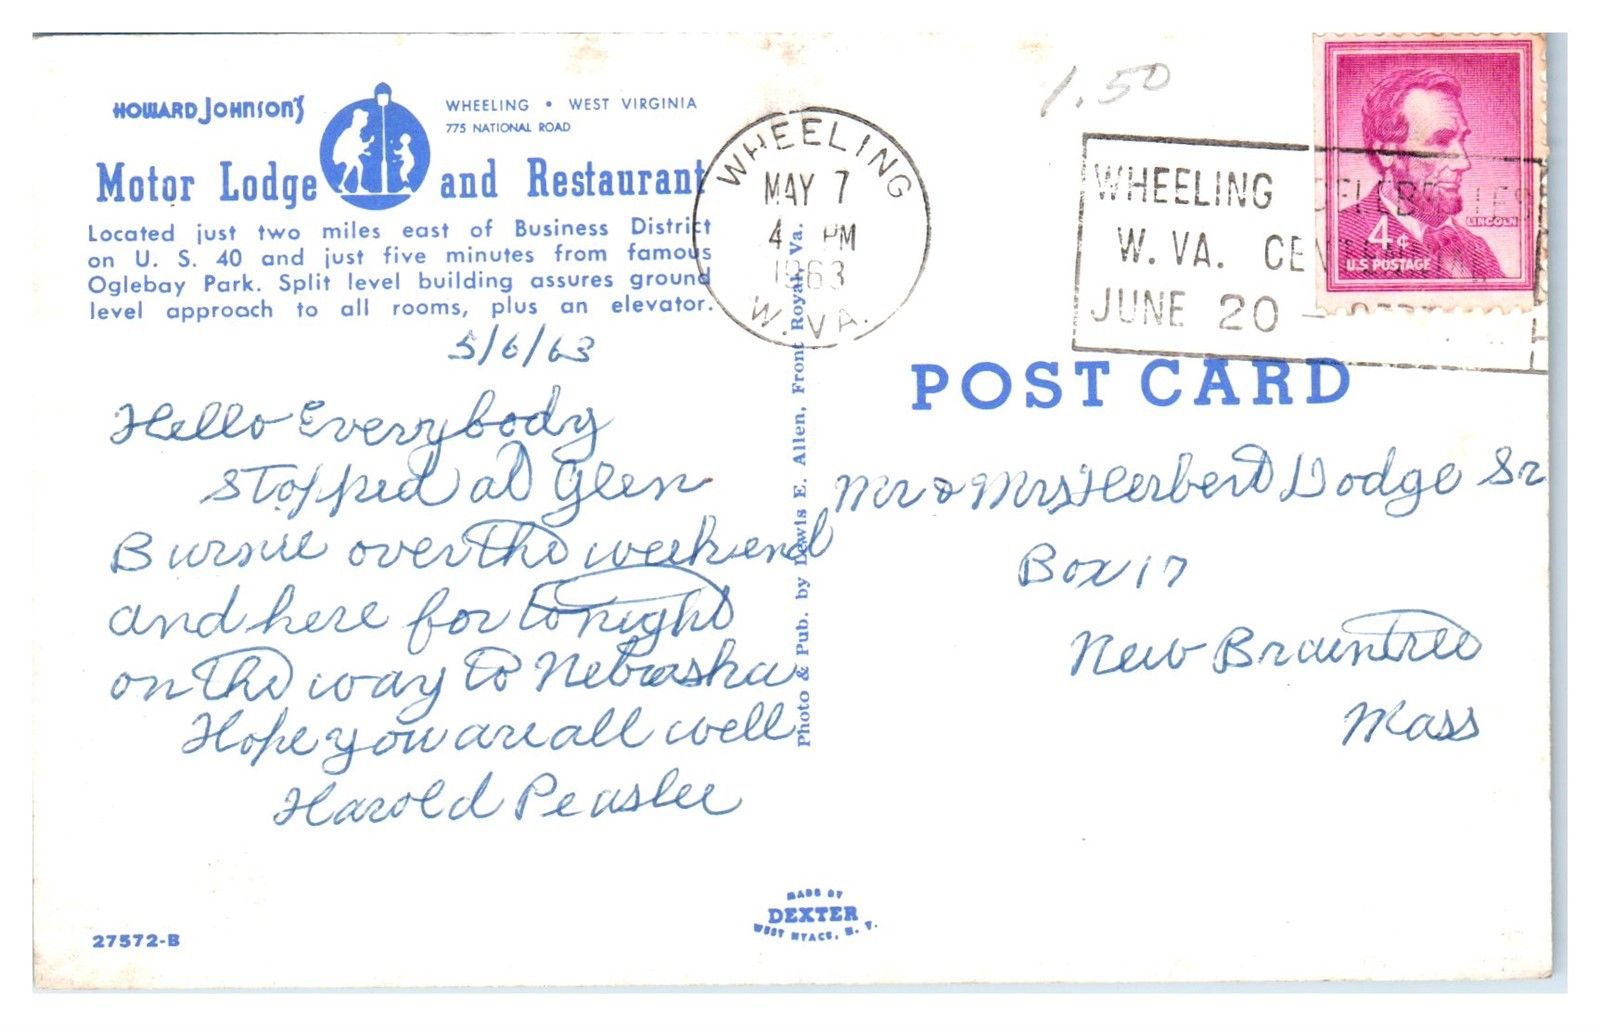 HOWARD JOHNSON'S
WHEELING • WEST VIRGINIA
775 NATIONAL ROAD
Motor Lodge and Restaurant
Located just two miles east of Business District
on U. S. 40 and just five minutes from famous
Oglebay Park. Split level building assures ground
level approach to all rooms, plus an elevator.
5/6/63
Hello Everybody
stopped at Glen
Burnie over the weekend
and here for tonight
on the way to Nebraska
Hope you are all well
Harold Peaslee
27572-B
Photo & Pub. by Lewis E. Allen, Front Royal, Va.
MADE BY
DEXTER
WEST NYACK, N. Y.
WHEELING
MAY 7
4 PM
1963
W. VA.
1.50
WHEELING CELEBRATES
W. VA. CENTENNIAL
JUNE 20 –
LINCOLN
4¢
U.S. POSTAGE
POST CARD
Mr & Mrs Herbert Dodge Sr
Box 17
New Braintree
Mass